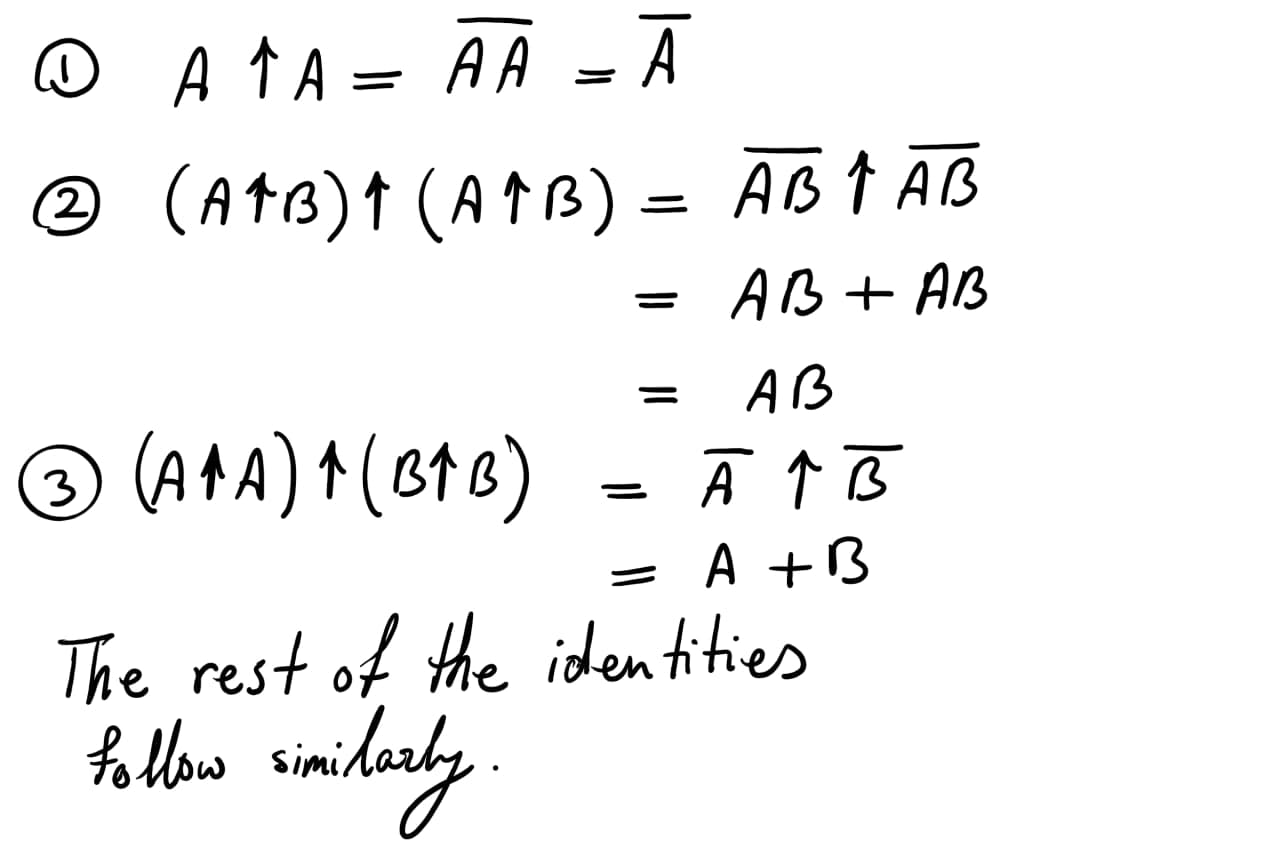 ① A ↑ A = A̅A̅ = A̅
② (A↑B)↑(A↑B) = A̅B̅ ↑ A̅B̅
= AB + AB
= AB
③ (A↑A)↑(B↑B) = A̅ ↑ B̅
= A + B
The rest of the identities
follow similarly.